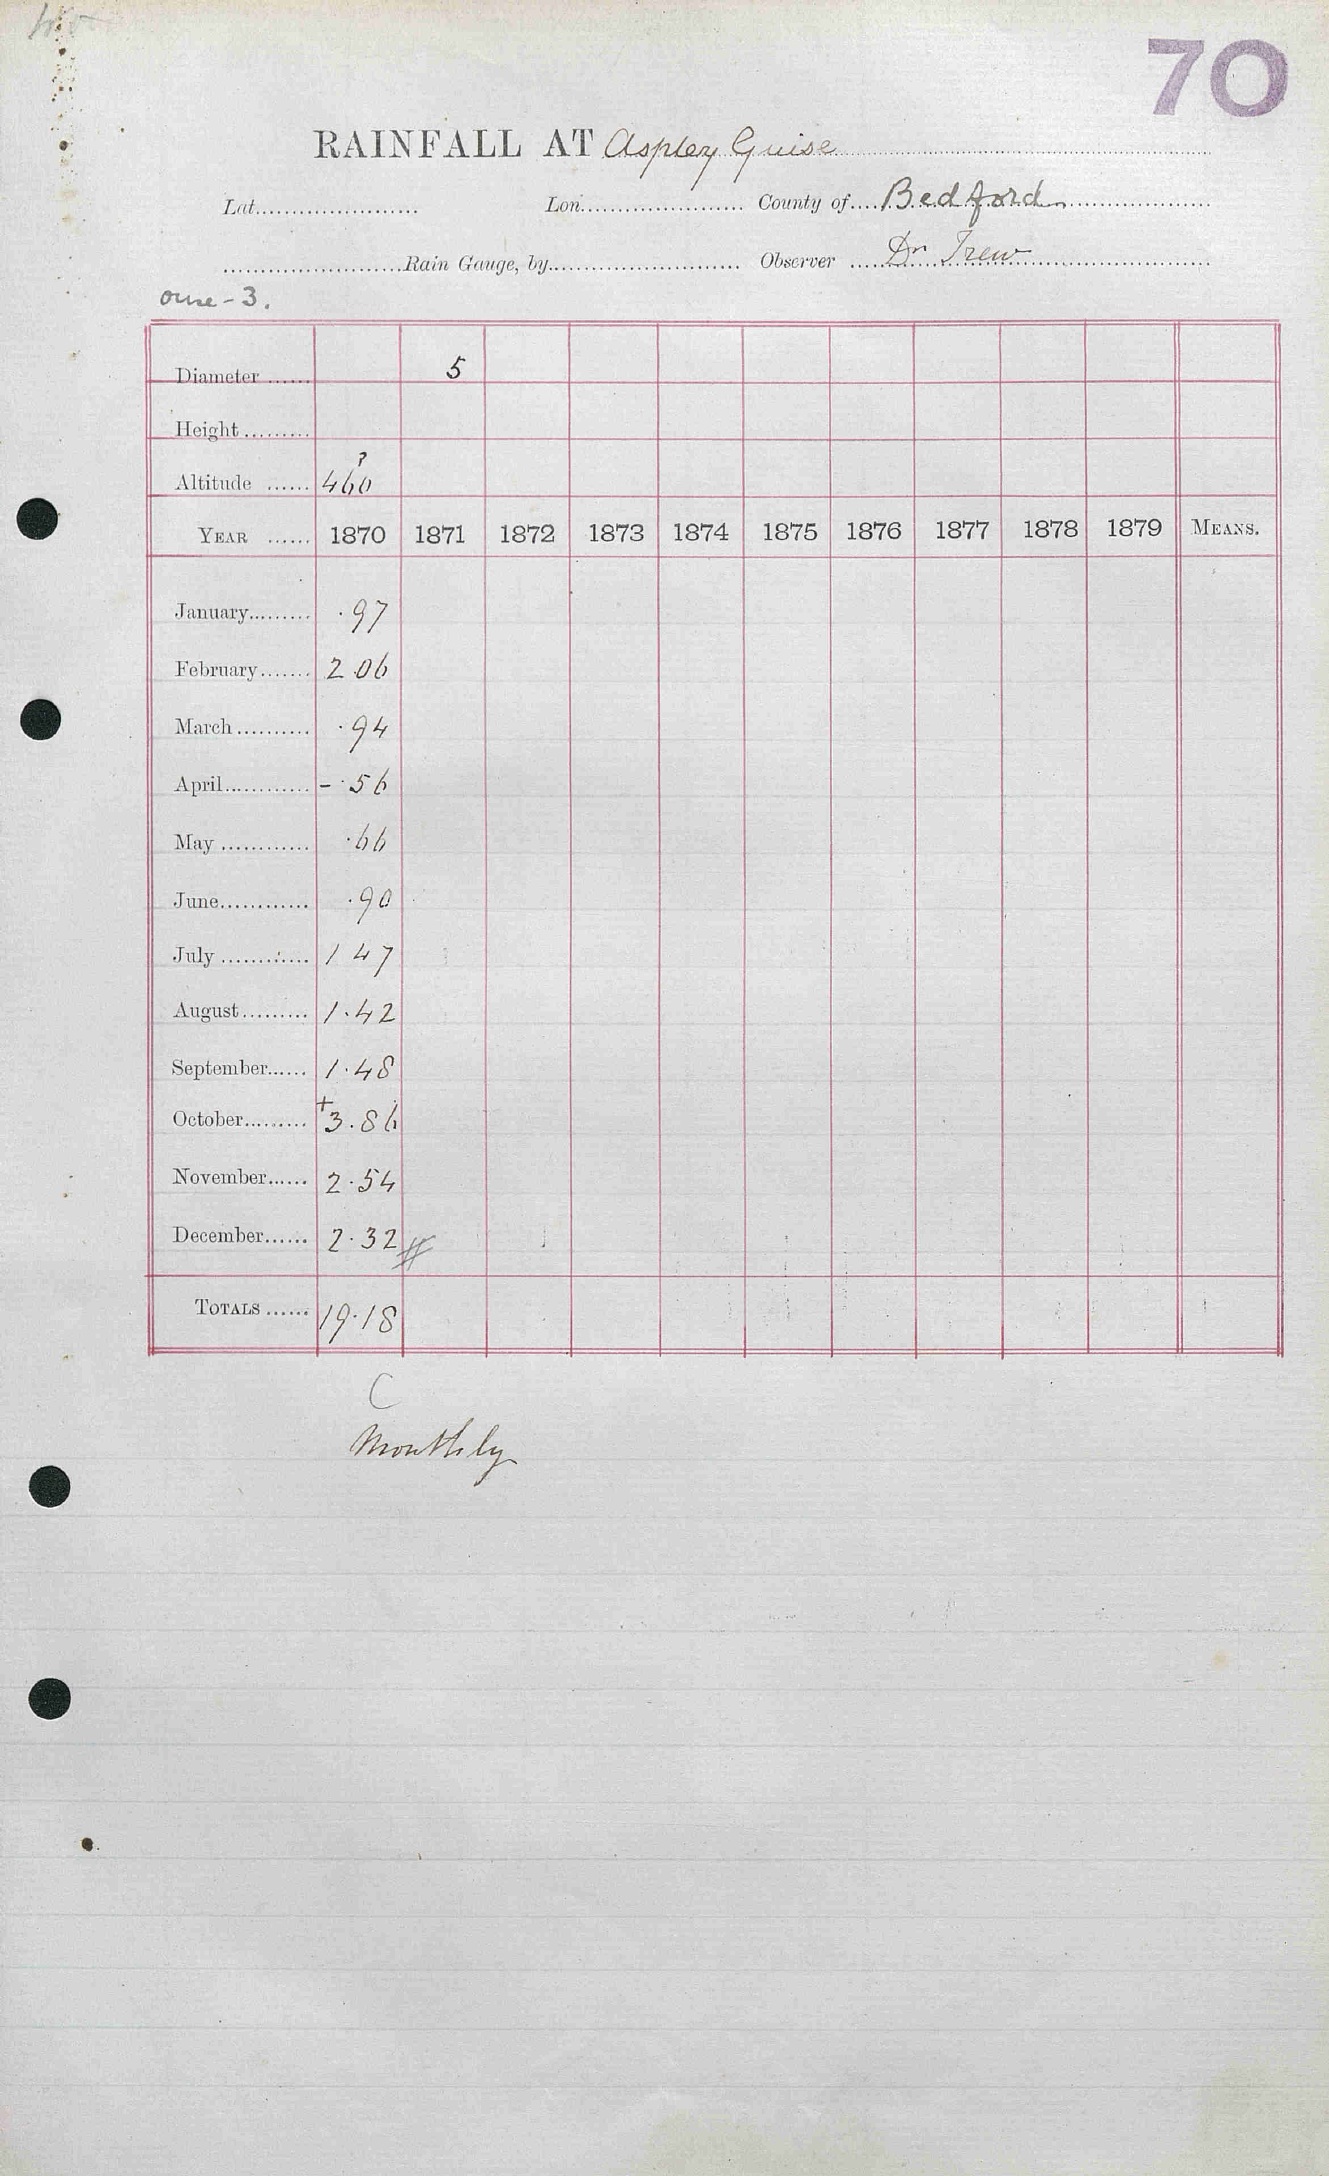 70
RAINFALL AT Aspley Guise
Lat. Lon. County of Bedford
Rain Gauge, by Observer Dr Trew
ouse - 3.
Diameter 5
Height
?
Altitude 460
YEAR 1870 1871 1872 1873 1874 1875 1876 1877 1878 1879 MEANS.
January .97
February 2.06
March .94
April - .56
May .66
June .90
July 1 47
August 1.42
September 1.48
October +3.86
November 2.54
December 2.32 #
TOTALS 19.18
C
Monthly